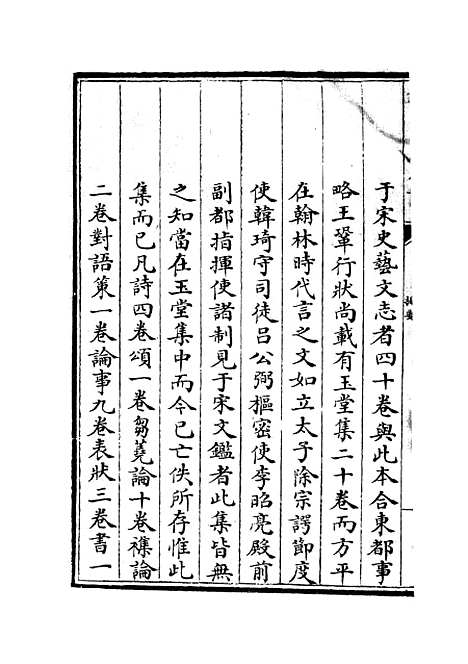 于宋史藝文志者四十卷與此本合東都事
略王鞏行狀尚載有玉堂集二十卷而方平
在翰林時代言之文如立太子除宗諤節度
使韓琦守司徒吕公弼樞密使李昭亮殿前
副都指揮使諸制見于宋文鑑者此集皆無
之知當在玉堂集中而今已亡佚所存惟此
集而已凡詩四卷頌一卷芻蕘論十卷襍論
二卷對語策一卷論事九卷表狀三卷書一